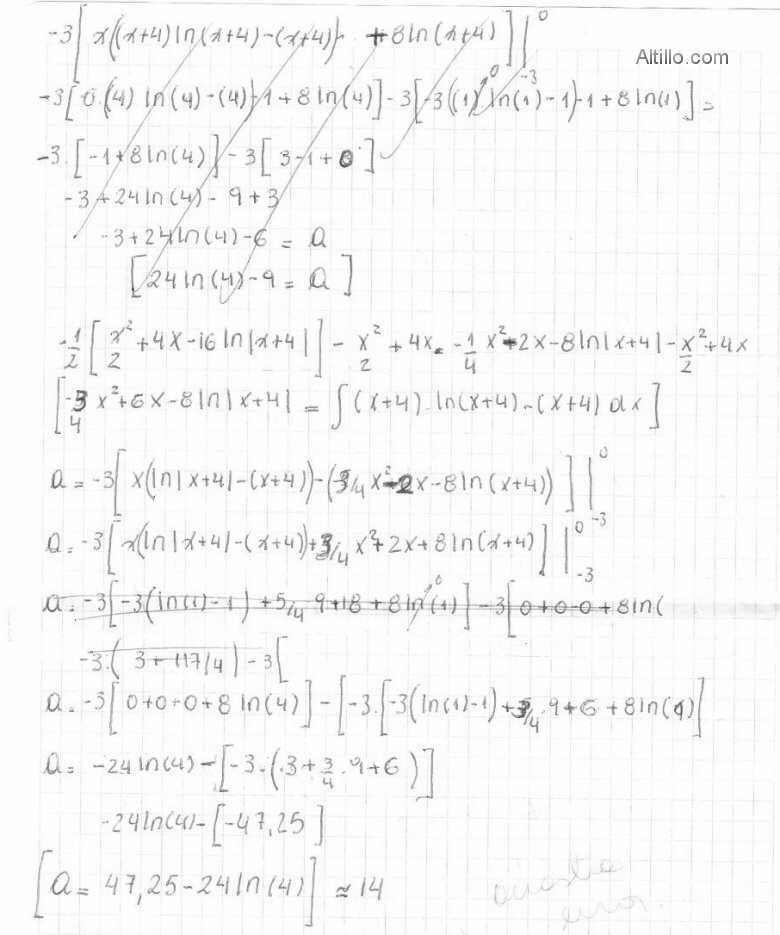 -3[ x((x+4)ln(x+4)-(x+4)) + 8ln(x+4) ]|⁰₋₃
Altillo.com
-3[0.(4) ln(4)-(4)-1+8ln(4)]-3[-3((1) ln(1)-1)-1+8ln(1)]=
-3.[-1+8ln(4)]-3[3-1+0]
-3+24ln(4)-9+3
-3+24ln(4)-6=a
[24ln(4)-9=a]
-1/2 [x²/2+4x-16ln|x+4|]-x²/2+4x=-1/4 x²+2x-8ln|x+4|-x²/2+4x
[-3/4 x²+6x-8ln|x+4|=∫(x+4).ln(x+4)-(x+4)dx]
a=-3[x(ln|x+4|-(x+4))-(-3/4x²-2x-8ln(x+4))]|⁰₋₃
a=-3[x(ln|x+4|-(x+4))+3/4x²+2x+8ln(x+4)]|⁰₋₃
a=-3[-3(ln(1)-1)+5/4 9+18+8ln(1)]-3[0+0-0+8ln(
-3.(3+117/4)-3[
a=-3[0+0+0+8ln(4)]-[-3.[-3(ln(1)-1)+3/4.9+6+8ln(1)]
a=-24ln(4)-[-3.(3+3/4.9+6)]
-24ln(4)-[-47,25]
[a=47,25-24ln(4)]≈14
error.